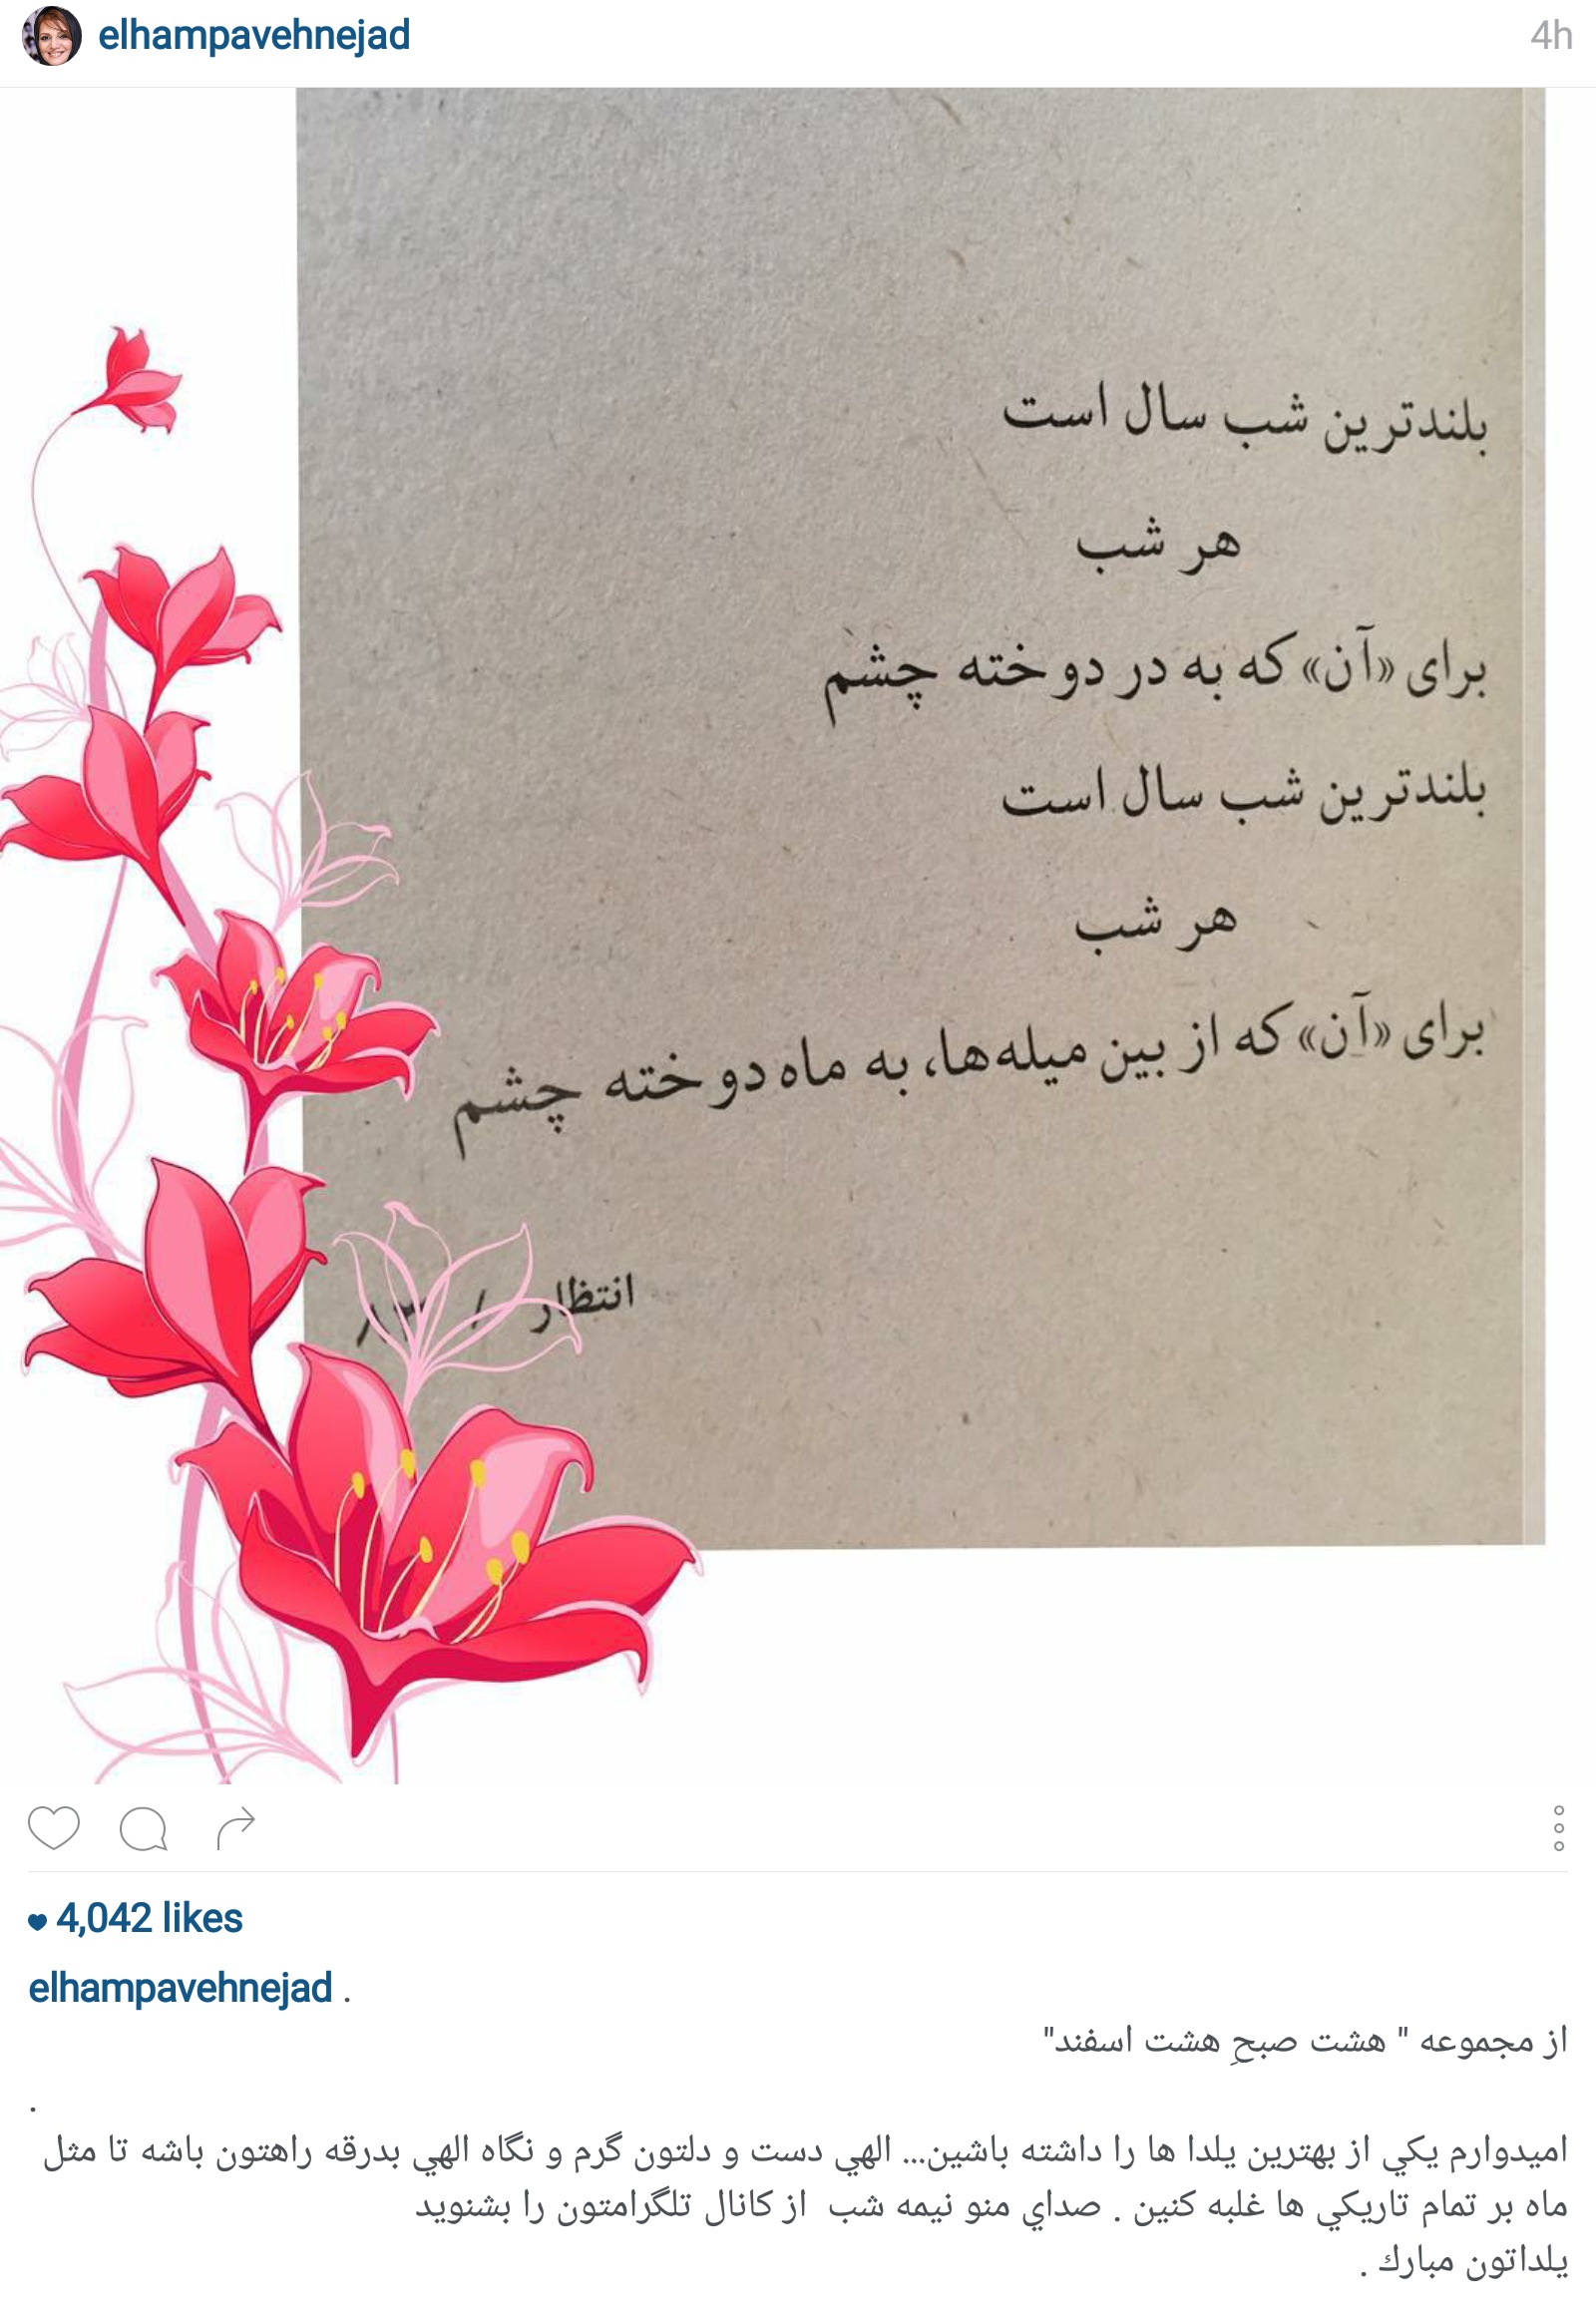 elhampavehnejad
4h
بلندترین شب سال است
هر شب
برای «آن» که به در دوخته چشم
بلندترین شب سال است
هر شب
برای «آن» که از بین میله‌ها، به ماه دوخته چشم
انتظار /
4,042 likes
elhampavehnejad .
از مجموعه " هشت صبحِ هشت اسفند"
.
اميدوارم يكي از بهترين يلدا ها را داشته باشين... الهي دست و دلتون گرم و نگاه الهي بدرقه راهتون باشه تا مثل
ماه بر تمام تاريكي ها غلبه كنين . صداي منو نيمه شب از كانال تلگرامتون را بشنويد
يلداتون مبارك .